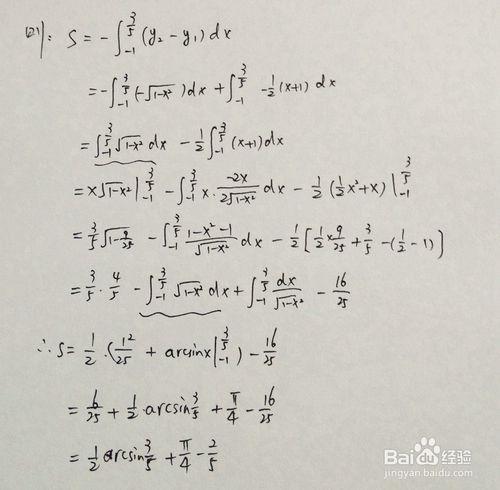 (2): S = -∫_{-1}^{3/5} (y₂ - y₁) dx
= -∫_{-1}^{3/5} (-√(1-x²)) dx + ∫_{-1}^{3/5} -1/2 (x+1) dx
= ∫_{-1}^{3/5} √(1-x²) dx - 1/2 ∫_{-1}^{3/5} (x+1) dx
= x√(1-x²) |_{-1}^{3/5} - ∫_{-1}^{3/5} x · (-2x)/(2√(1-x²)) dx - 1/2 (1/2 x² + x) |_{-1}^{3/5}
= 3/5 √(1-9/25) - ∫_{-1}^{3/5} (1-x²-1)/√(1-x²) dx - 1/2 [1/2 × 9/25 + 3/5 - (1/2 - 1)]
= 3/5 · 4/5 - ∫_{-1}^{3/5} √(1-x²) dx + ∫_{-1}^{3/5} dx/√(1-x²) - 16/25
∴ S = 1/2 · (12/25 + arcsinx |_{-1}^{3/5}) - 16/25
= 6/25 + 1/2 · arcsin 3/5 + π/4 - 16/25
= 1/2 arcsin 3/5 + π/4 - 2/5
Baidu 经验
jingyan.baidu.com